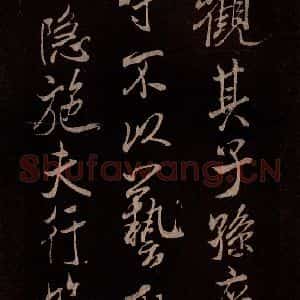 觀其子孫
不以藝
隐施夫行
Shufawang.CN